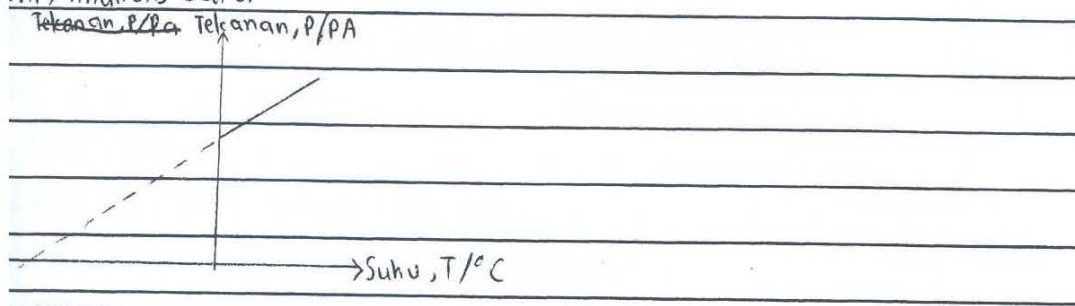 Tekanan, P/Pa Tekanan, P/PA
Suhu, T/°C